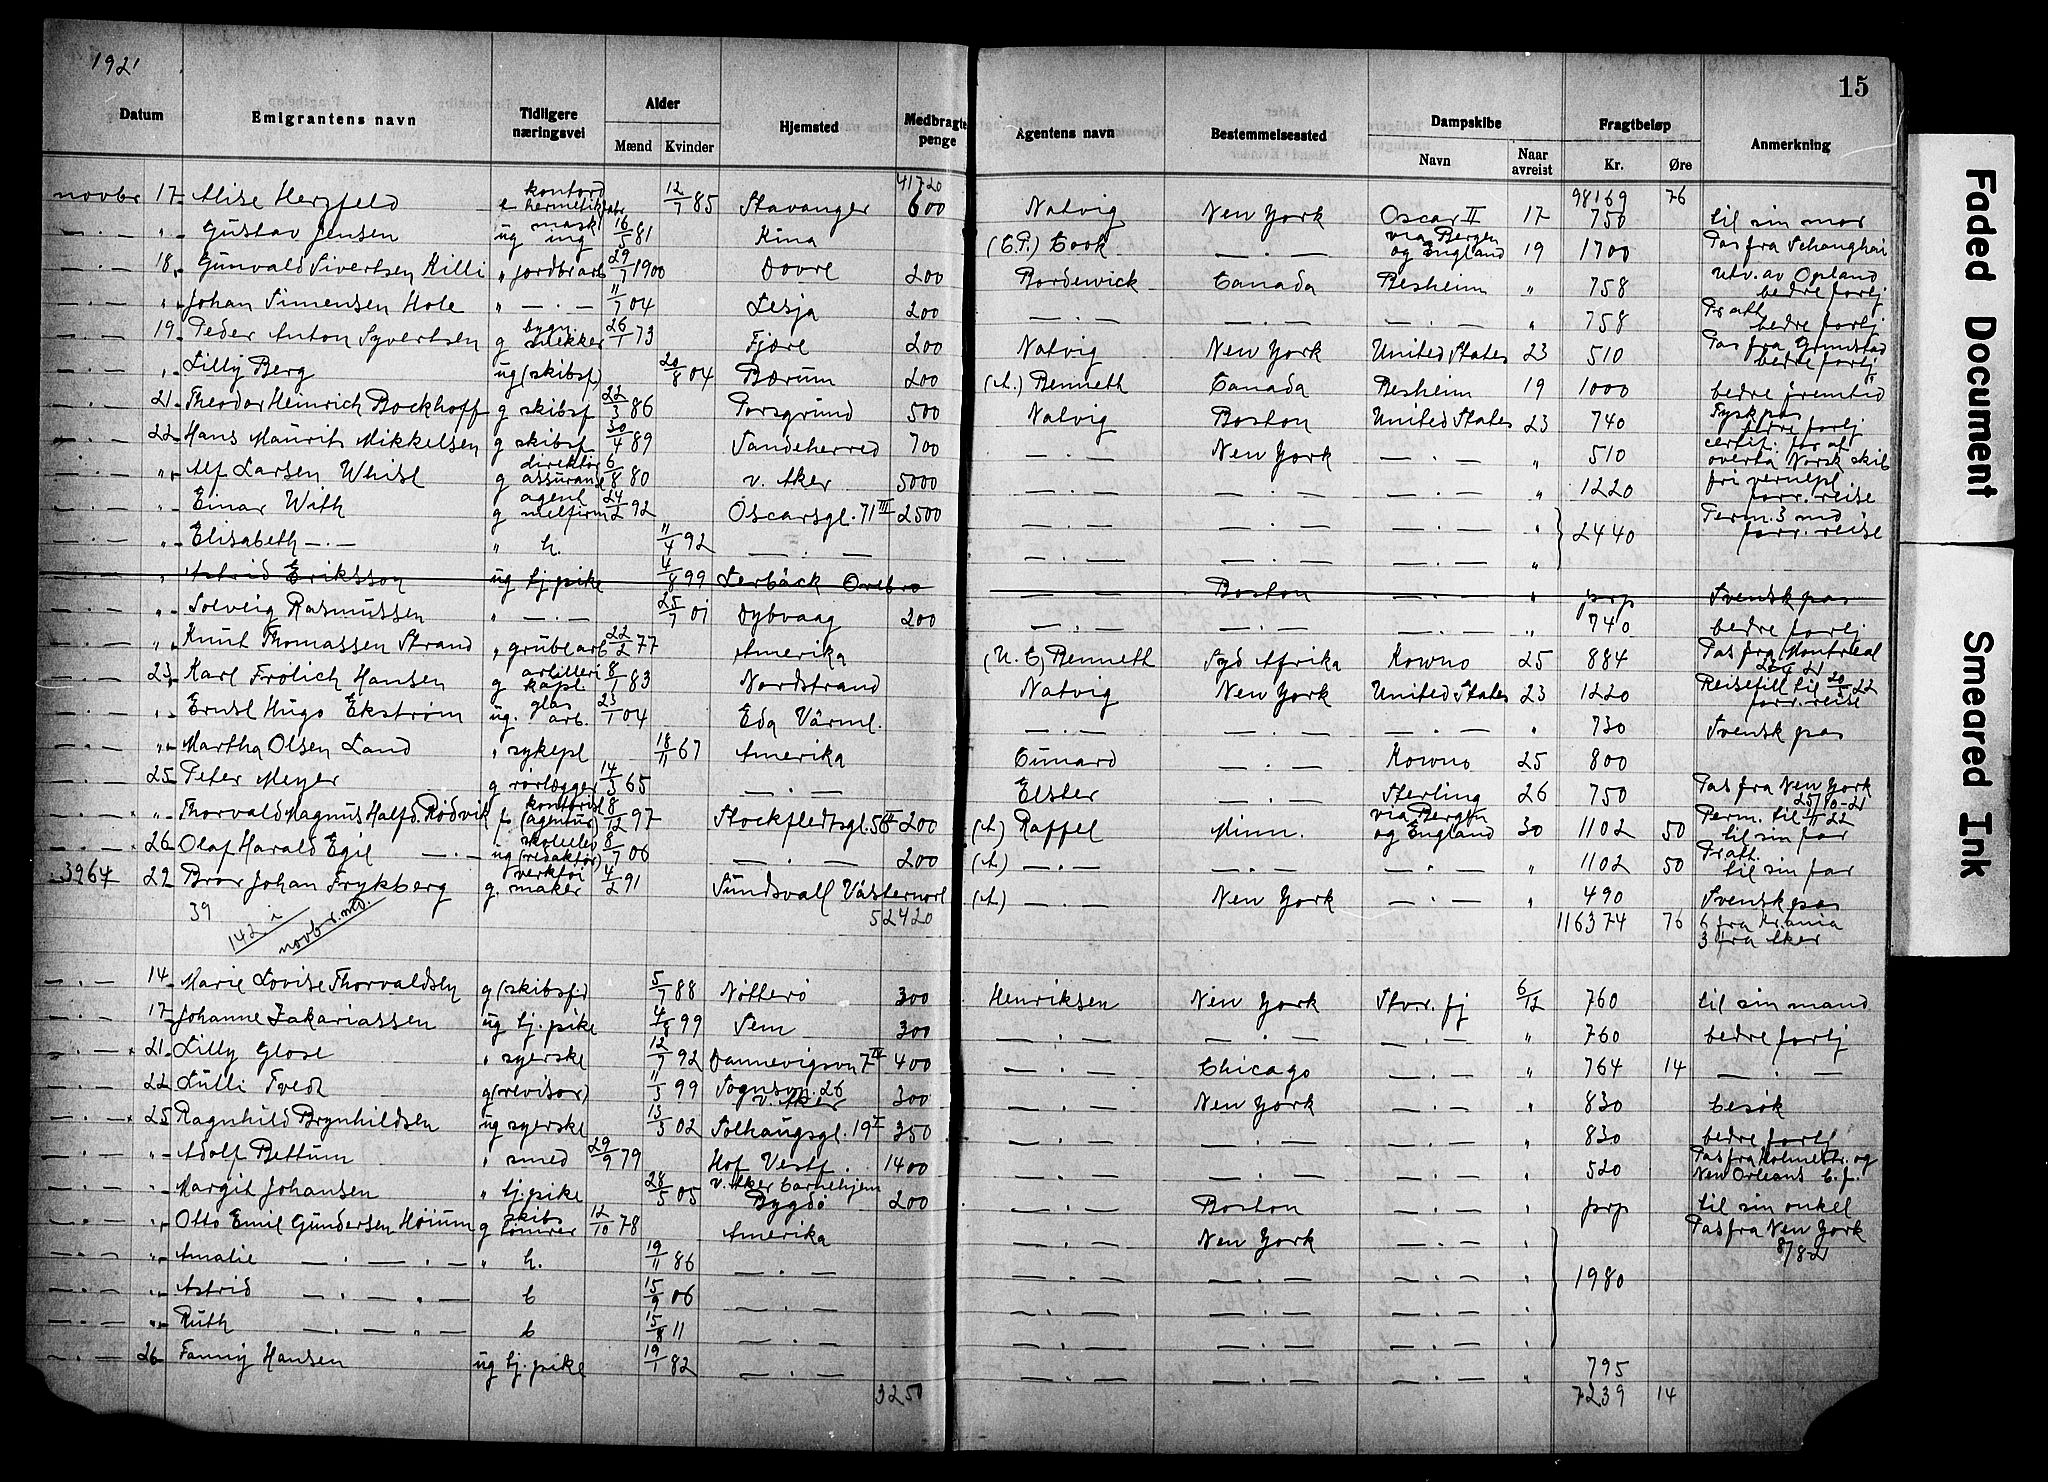 1921
15
Datum Emigrantens navn Tidligere næringsvei Alder Mænd Kvinder Hjemsted Medbragte penge Agentens navn Bestemmelsessted Dampskibe Navn Naar avreist Fragtbeløp Kr. Øre Anmerkning
41720 98169 76
novbr 17 Alise Herzfeld e kontord hermetikfabr 12/7 85 Stavanger 600 Natvig New York Oscar II 17 750 til sin mor
" Gustav Jensen ug mask ing 16/5 81 Kina (C.P.) Cook — . — via Bergen og England 19 1700 Pas fra Schanghai
18 Gunvald Sivertsen Killi " jordbr arb 29/7 1900 Dovre 200 Bordewick Canada Besheim " 758 utv. av Opland bedre forlj
" Johan Simensen Hole " — . — 11/7 04 Lesja 200 — . — — . — — . — " 758 Pratt bedre forlj
19 Peder Anton Syvertsen g bygn. snekker 26/1 73 Fjære 200 Natvig New York United States 23 510 Pas fra Grimstad bedre forlj
" Lilly Berg ug (skibsf) 20/8 04 Bærum 200 (A.) Benneth Canada Besheim 19 1000 bedre fremtid
21 Theodor Heinrich Bockhoff g skibsf 22/3 86 Porsgrund 500 Natvig Boston United States 23 740 Tysk pas bedre forlj
22 Hans Maurits Mikkelsen g skibsf 30/4 89 Sandeherred 700 — . — New York — . — " 510 certif. for at overta Norsk skib
" Alf Larsen Whist g direktør assuranse 6/8 80 v. Aker 5000 — . — — . — — . — " 1220 fri vernepl forr. reise
" Einar With g agent melfirm 24/2 92 Oscarsgt. 71 III 2500 — . — — . — — . — " 2440 Perm. 3 md forr. reise
" Elisabeth — . — " h. 11/4 92 — . — — . — — . — — . — "
" Astrid Eriksson ug tj. pike 4/8 99 Lerbäck Örebro — . — Boston — . — " prp Svensk pas
" Solveig Rasmussen " — . — 25/7 01 Dybvaag 200 — . — — . — — . — " 740 bedre forlj
" Knut Thomassen Strand " grubearb 22/2 77 Amerika (U.C) Benneth Syd Afrika Kowno 25 884 Pas fra Montreal
23 Karl Frölich Hansen g artilleri kapt 8/1 83 Nordstrand Natvig New York United States 23 1220 Reisetill til 20/5 22 forr. reise
" Ernst Hugo Ekström ug. glas arb. 23/1 04 Eda Värml. — . — — . — — . — " 730 Svensk pas
" Martha Olsen Land " sykepl 18/11 67 Amerika Cunard — . — Kowno 25 800
25 Peter Meyer g rørlægger 14/3 65 — . — Elster — . — Sterling 26 750 Pas fra New York 25/10-21
" Thorvald Magnus Halfd. Rødvik f kontorist (agentur) 8/12 97 Stockfledtsgt. 56 II 200 (A) Raffel Minn. via Bergen og England 30 1102 50 Perm. til 22 til sin far
26 Olaf Harald Egil — . — ug skoleelev (redaktør) 8/7 06 — . — 200 (A) — . — — . — — . — " 1102 50 Pratt. til sin far
3964 29 Bror Johan Frykberg g verktøi maker 4/2 91 Sundsvall Västernorl (A) — . — New York — . — " 490 Svensk pas
39 52420 116374 76 6 fra Kr.ania
142 i novbr. md. 3 fra Aker
14 Marie Lovise Thorvaldsen g (skibsf) 5/7 88 Nøtterø 300 Henriksen New York Stvr. fj 6/12 760 til sin mand
17 Johanne Zakariassen ug tj. pike 4/8 99 Sem 300 — . — — . — — . — " 760 bedre forlj
21 Lilly Glose " syerske 12/7 92 Dannevigsvn 7 IV 400 — . — Chicago — . — " 764 14 — . —
22 Lulli Tvedt g (revisor) 11/3 99 Sognsvn. 26 v. Aker 300 — . — New York — . — " 830 besøk
25 Ragnhild Brynhildsen ug syerske 13/3 02 Solhaugsgt. 19 I 350 — . — — . — — . — " 830 bedre forlj
" Adolf Bettum " smed 29/9 79 Hof Vestf. 1400 — . — — . — — . — " 520 Pas fra Holmestr. og New Orleans b. f.
" Margit Johansen " tj. pike 28/5 05 v. Aker barnehjem Bygdø 200 — . — Boston — . — " prp til sin onkel
" Otto Emil Gundersen Høium g skibs tømrer 12/10 78 Amerika — . — New York — . — " 1980 Pas fra New York 8/8 21
" Amalie — . — . — " h. 19/11 86 — . — — . — — . — — . — "
" Astrid — . — . — b 15/9 06 — . — — . — — . — — . — "
" Ruth — . — " — b 15/8 11 — . — — . — — . — — . — "
26 Fanny Hansen ug tj. pike 19/1 82 — . — — . — — . — — . — " 795
3250 7239 14
Faded Document
Smeared Ink